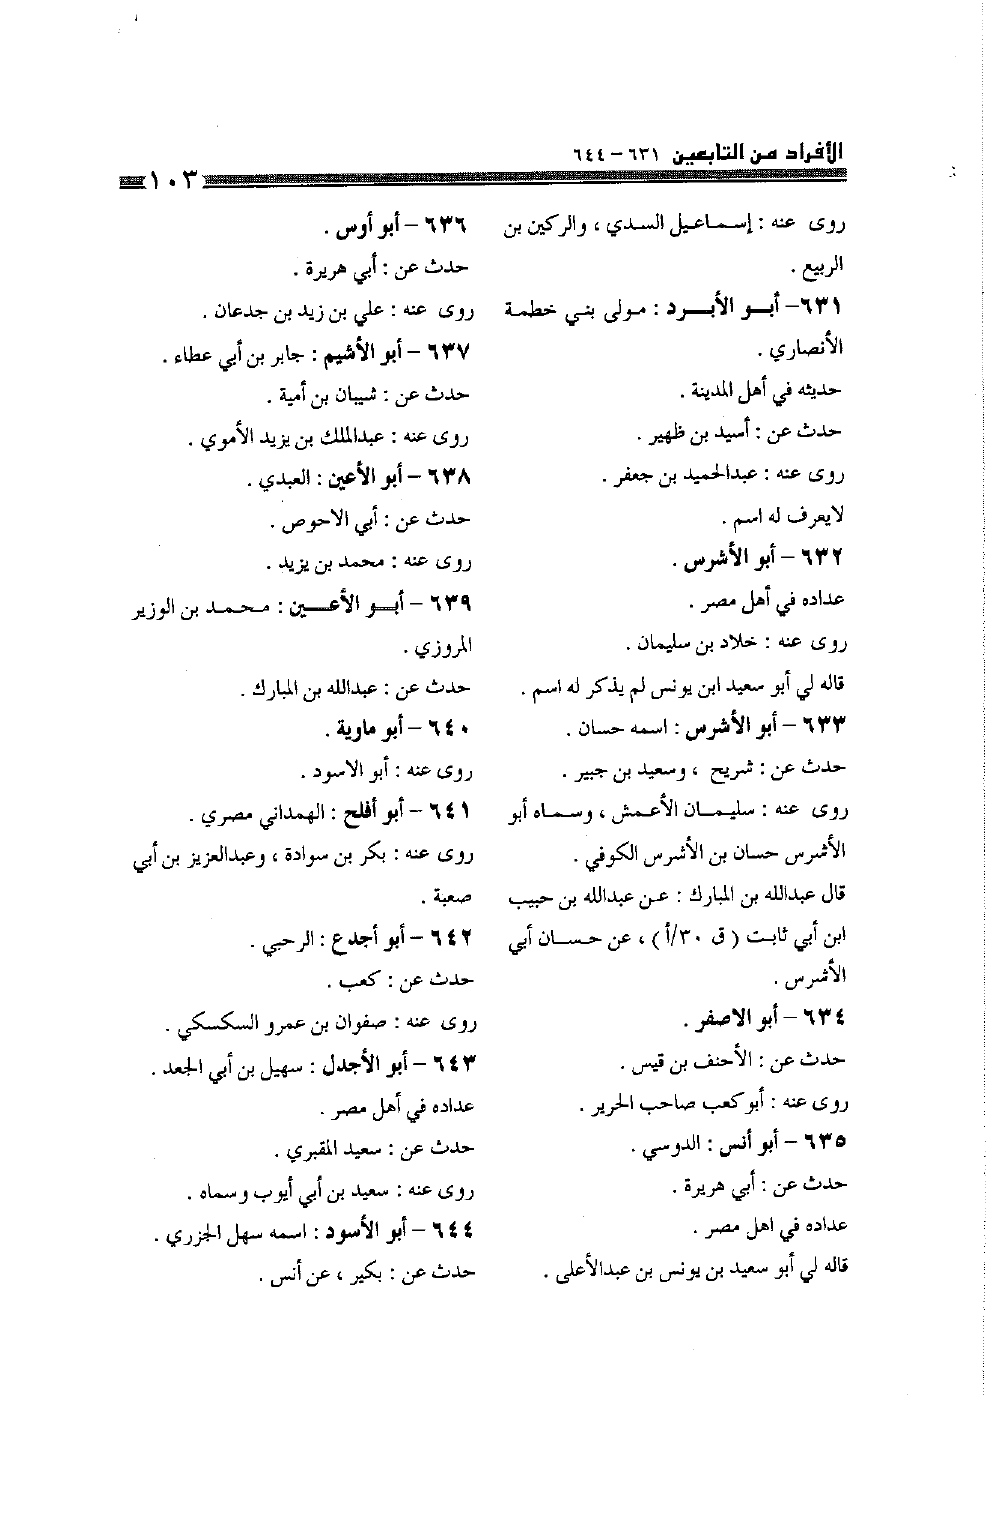 الأفراد من التابعين ٦٣١ – ٦٤٤
١٠٣
روى عنه : إسماعيل السدي ، والركين بن
الربيع .
٦٣١ – أبو الأبرد : مولى بني خطمة
الأنصاري .
حديثه في أهل المدينة .
حدث عن : أسيد بن ظهير .
روى عنه : عبدالحميد بن جعفر .
لايعرف له اسم .
٦٣٢ – أبو الأشرس .
عداده في أهل مصر .
روى عنه : خلاد بن سليمان .
قاله لي أبو سعيد ابن يونس لم يذكر له اسم .
٦٣٣ – أبو الأشرس : اسمه حسان .
حدث عن : شريح ، وسعيد بن جبير .
روى عنه : سليمان الأعمش ، وسماه أبو
الأشرس حسان بن الأشرس الكوفي .
قال عبدالله بن المبارك : عن عبدالله بن حبيب
ابن أبي ثابت ( ق ٣٠/أ ) ، عن حسان أبي
الأشرس .
٦٣٤ – أبو الاصفر .
حدث عن : الأحنف بن قيس .
روى عنه : أبو كعب صاحب الحرير .
٦٣٥ – أبو أنس : الدوسي .
حدث عن : أبي هريرة .
عداده في اهل مصر .
قاله لي أبو سعيد بن يونس بن عبدالأعلى .
٦٣٦ – أبو أوس .
حدث عن : أبي هريرة .
روى عنه : علي بن زيد بن جدعان .
٦٣٧ – أبو الأشيم : جابر بن أبي عطاء .
حدث عن : شيبان بن أمية .
روى عنه : عبدالملك بن يزيد الأموي .
٦٣٨ – أبو الأعين : العبدي .
حدث عن : أبي الاحوص .
روى عنه : محمد بن يزيد .
٦٣٩ – أبو الأعين : محمد بن الوزير
المروزي .
حدث عن : عبدالله بن المبارك .
٦٤٠ – أبو ماوية .
روى عنه : أبو الاسود .
٦٤١ – أبو أفلح : الهمداني مصري .
روى عنه : بكر بن سوادة ، وعبدالعزيز بن أبي
صعبة .
٦٤٢ – أبو أجدع : الرحبي .
حدث عن : كعب .
روى عنه : صفوان بن عمرو السكسكي .
٦٤٣ – أبو الأجدل : سهيل بن أبي الجعد .
عداده في أهل مصر .
حدث عن : سعيد المقبري .
روى عنه : سعيد بن أبي أيوب وسماه .
٦٤٤ – أبو الأسود : اسمه سهل الجزري .
حدث عن : بكير ، عن أنس .